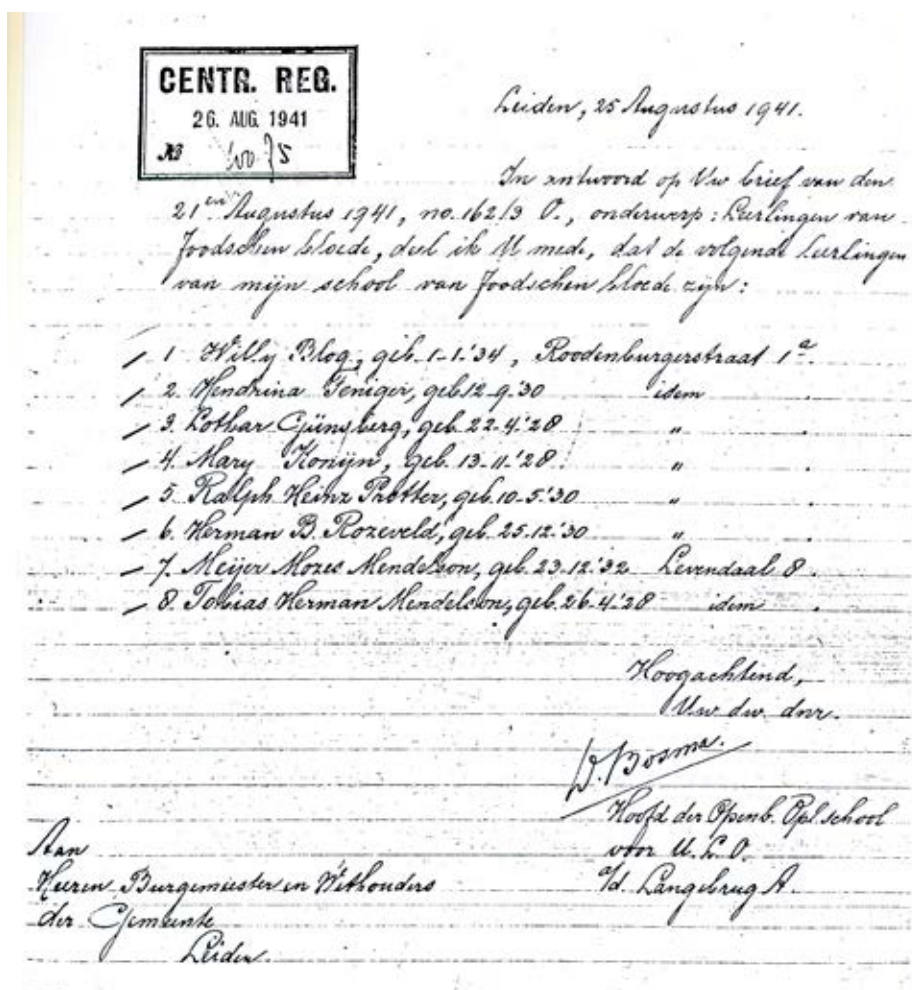 CENTR. REG.
26. AUG. 1941
№
Leiden, 25 Augustus 1941.
In antwoord op Uw brief van den
21en Augustus 1941, no. 162/3 O., onderwerp: Leerlingen van
Joodschen bloede, deel ik U mede, dat de volgende leerlingen
van mijn school van Joodschen bloede zijn:
1. Willy Blog, geb. 1-1-'34, Roodenburgerstraat 1a.
2. Hendrina Geniger, geb. 12-9-'30 idem
3. Lothar Günsberg, geb. 22-4-'28 "
4. Mary Konijn, geb. 13-11-'28 "
5. Ralph Heinz Protter, geb. 10-5-'30 "
6. Herman B. Rozeveld, geb. 25-12-'30 "
7. Meijer Mozes Mendelson, geb. 23-12-'32 Levendaal 8.
8. Tobias Herman Mendelson, geb. 26-4-'28 idem
Hoogachtend,
Uw dw. dnr.
D. Bosma.
Hoofd der Openb. Opl. school
voor U.L.O.
a/d. Langebrug A.
Aan
Heeren Burgemeester en Wethouders
der Gemeente
Leiden.